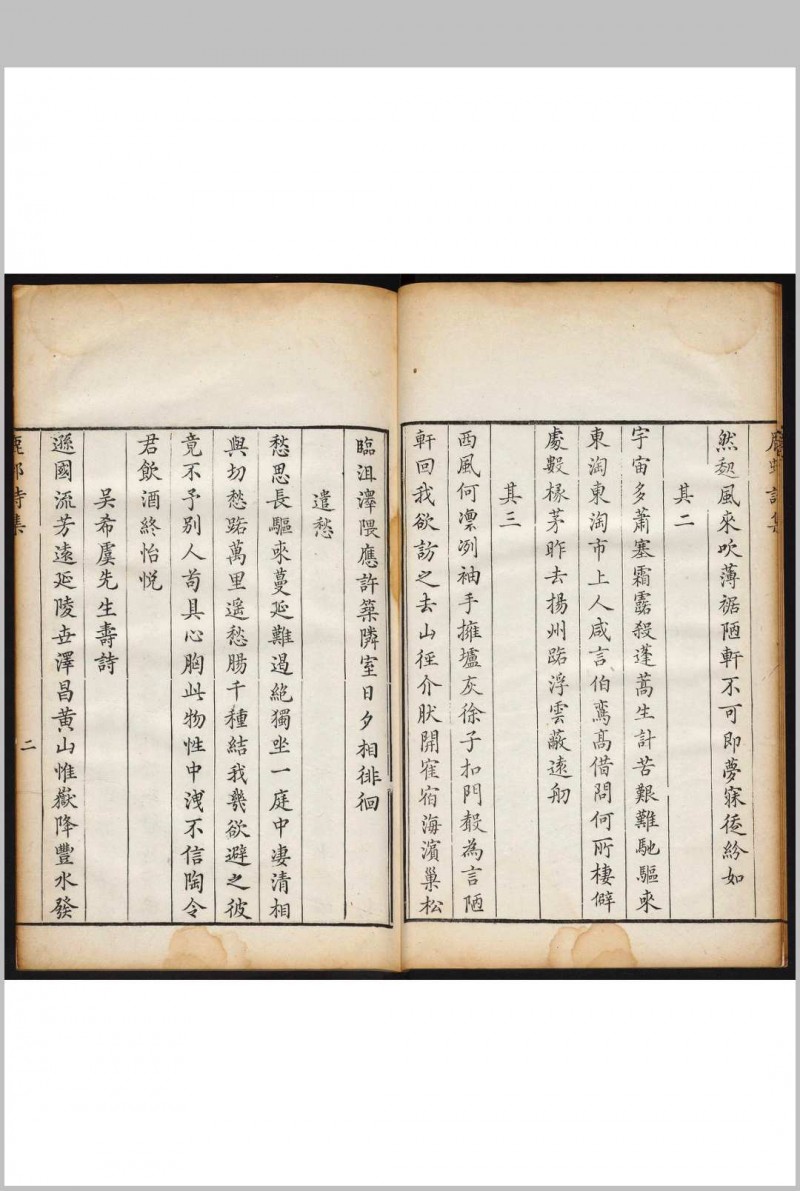 然起風來吹薄裾陋軒不可即夢寐徒紛如
其二
宇宙多蕭塞霜露殺蓬蒿生計苦艱難馳驅來
東淘東淘市上人咸言伯鸞高借問何所棲僻
處數椽茅昨去揚州路浮雲蔽遠舠
其三
西風何凛冽袖手擁壚灰徐子扣門瑴為言陋
軒回我欲訪之去山徑介肰開寉宿海濱巢松
臨沮澤隈應許築隣室日夕相徘徊
遣愁
愁思長驅來蔓延難遏絶獨坐一庭中凄清相
與切愁路萬里遥愁腸千種結我幾欲避之彼
竟不予别人苟具心胸此物性中洩不信陶令
君飲酒終怡悦
吴希虞先生壽詩
遜國流芳遠延陵世澤昌黄山惟嶽降豐水發
二